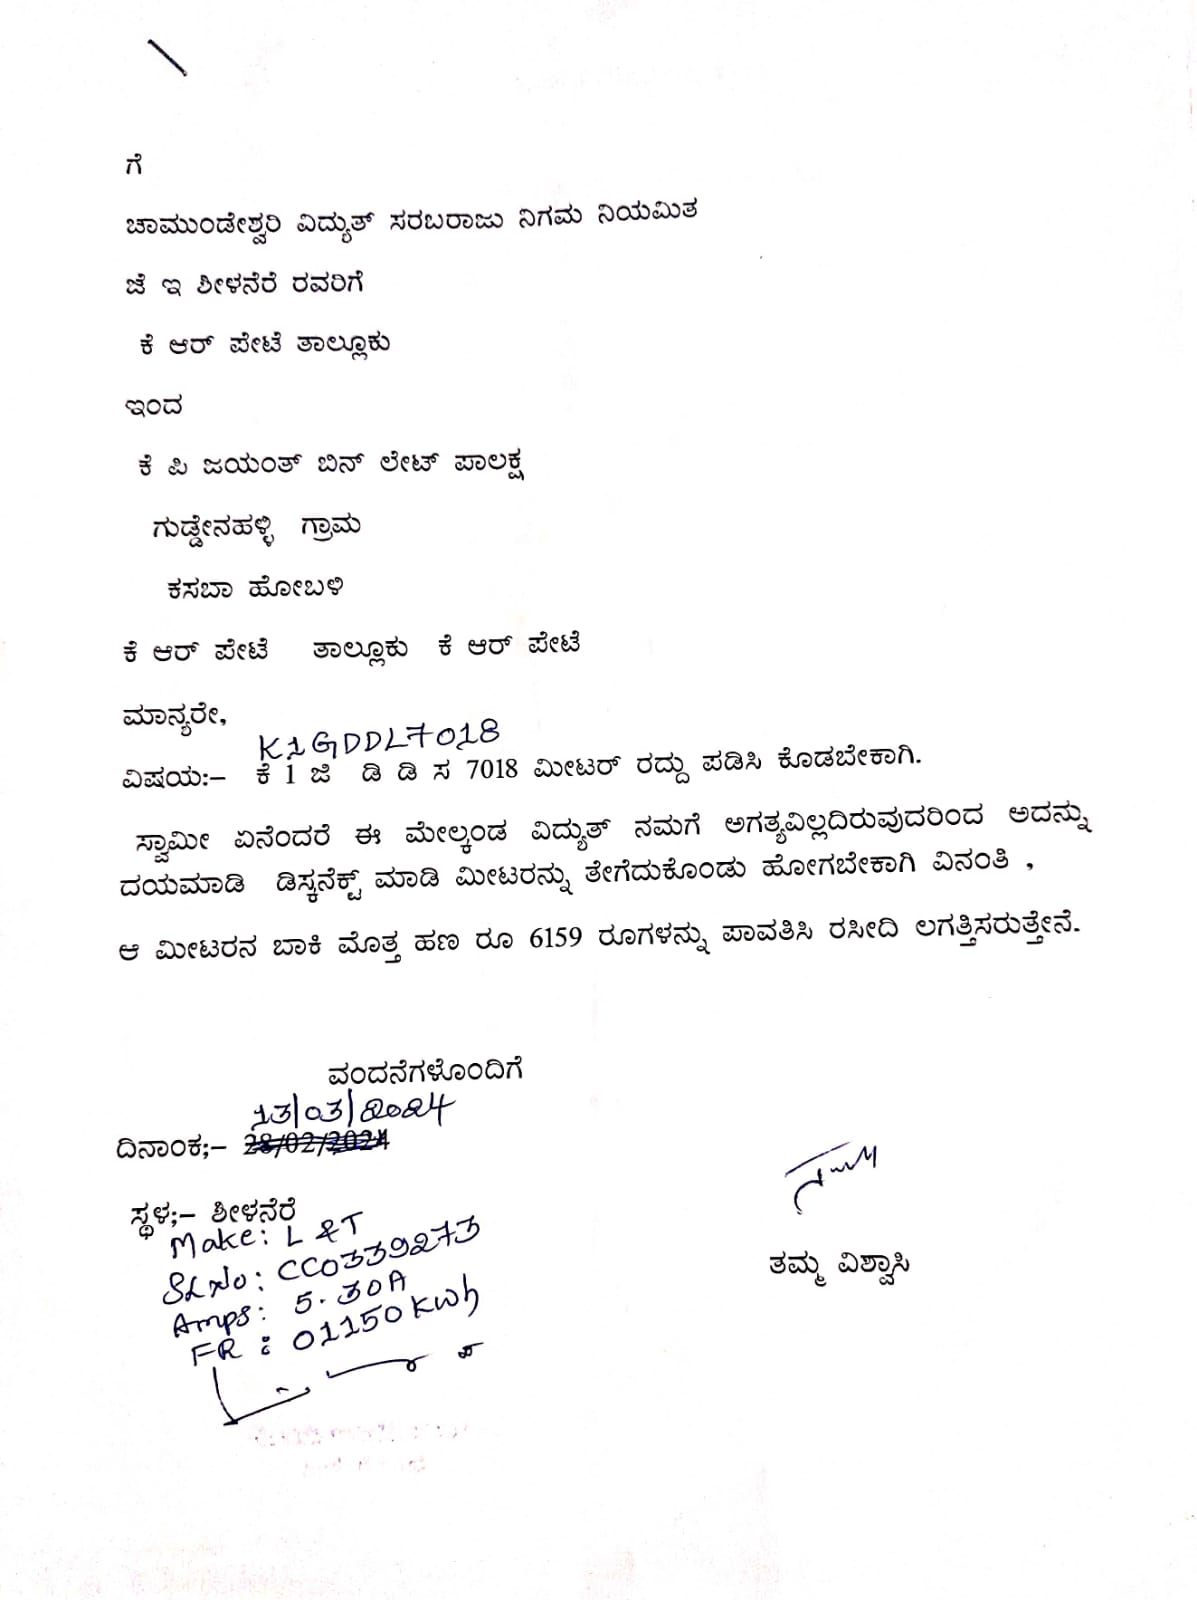 ಗೆ
ಚಾಮುಂಡೇಶ್ವರಿ ವಿದ್ಯುತ್ ಸರಬರಾಜು ನಿಗಮ ನಿಯಮಿತ
ಜೆ ಇ ಶೀಳನೆರೆ ರವರಿಗೆ
ಕೆ ಆರ್ ಪೇಟೆ ತಾಲ್ಲೂಕು
ಇಂದ
ಕೆ ಪಿ ಜಯಂತ್ ಬಿನ್ ಲೇಟ್ ಪಾಲಕ್ಷ
ಗುಡ್ಡೇನಹಳ್ಳಿ ಗ್ರಾಮ
ಕಸಬಾ ಹೋಬಳಿ
ಕೆ ಆರ್ ಪೇಟೆ ತಾಲ್ಲೂಕು ಕೆ ಆರ್ ಪೇಟೆ
ಮಾನ್ಯರೇ,
K1GDDL7018
ವಿಷಯ:– ಕೆ 1 ಜಿ ಡಿ ಡಿ ಸ 7018 ಮೀಟರ್ ರದ್ದು ಪಡಿಸಿ ಕೊಡಬೇಕಾಗಿ.
ಸ್ವಾಮೀ ಏನೆಂದರೆ ಈ ಮೇಲ್ಕಂಡ ವಿದ್ಯುತ್ ನಮಗೆ ಅಗತ್ಯವಿಲ್ಲದಿರುವುದರಿಂದ ಅದನ್ನು
ದಯಮಾಡಿ ಡಿಸ್ಕನೆಕ್ಟ್ ಮಾಡಿ ಮೀಟರನ್ನು ತೇಗೆದುಕೊಂಡು ಹೋಗಬೇಕಾಗಿ ವಿನಂತಿ ,
ಆ ಮೀಟರನ ಬಾಕಿ ಮೊತ್ತ ಹಣ ರೂ 6159 ರೂಗಳನ್ನು ಪಾವತಿಸಿ ರಸೀದಿ ಲಗತ್ತಿಸರುತ್ತೇನೆ.
ವಂದನೆಗಳೊಂದಿಗೆ
13/03/2024
ದಿನಾಂಕ;– 28/02/2024
ಸ್ಥಳ;– ಶೀಳನೆರೆ
Make: L &T
SLNo: CC0339273
Amps: 5.30A
FR: 01150 KWh
ತಮ್ಮ ವಿಶ್ವಾಸಿ